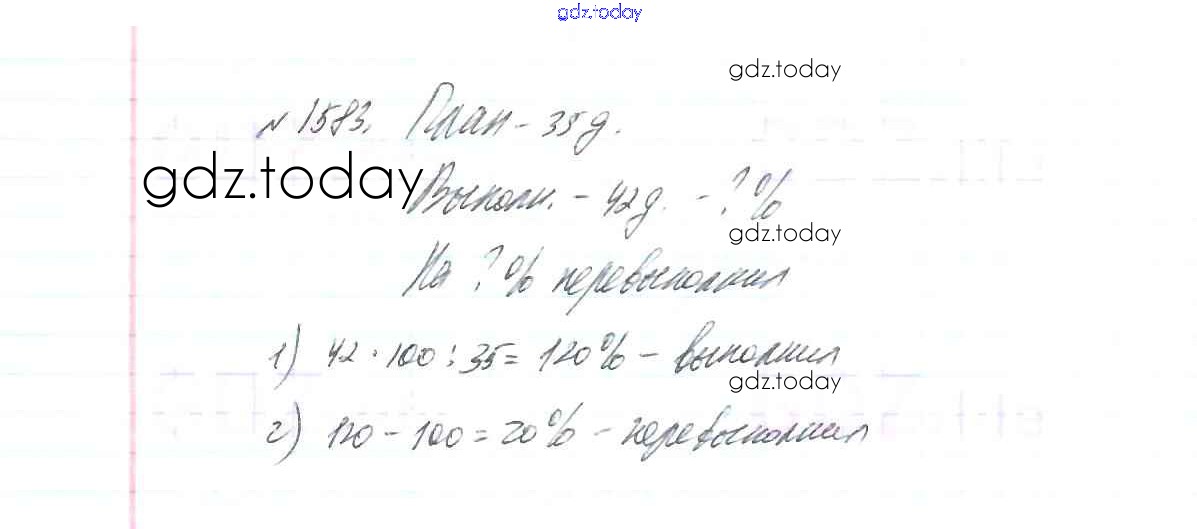 gdz.today
gdz.today
№ 1583. План - 35 д.
gdz.today
Выполн. - 42 д. - ? %
gdz.today
На ? % перевыполнил
1) 42 · 100 : 35 = 120% - выполнил
gdz.today
2) 120 - 100 = 20% - перевыполнил